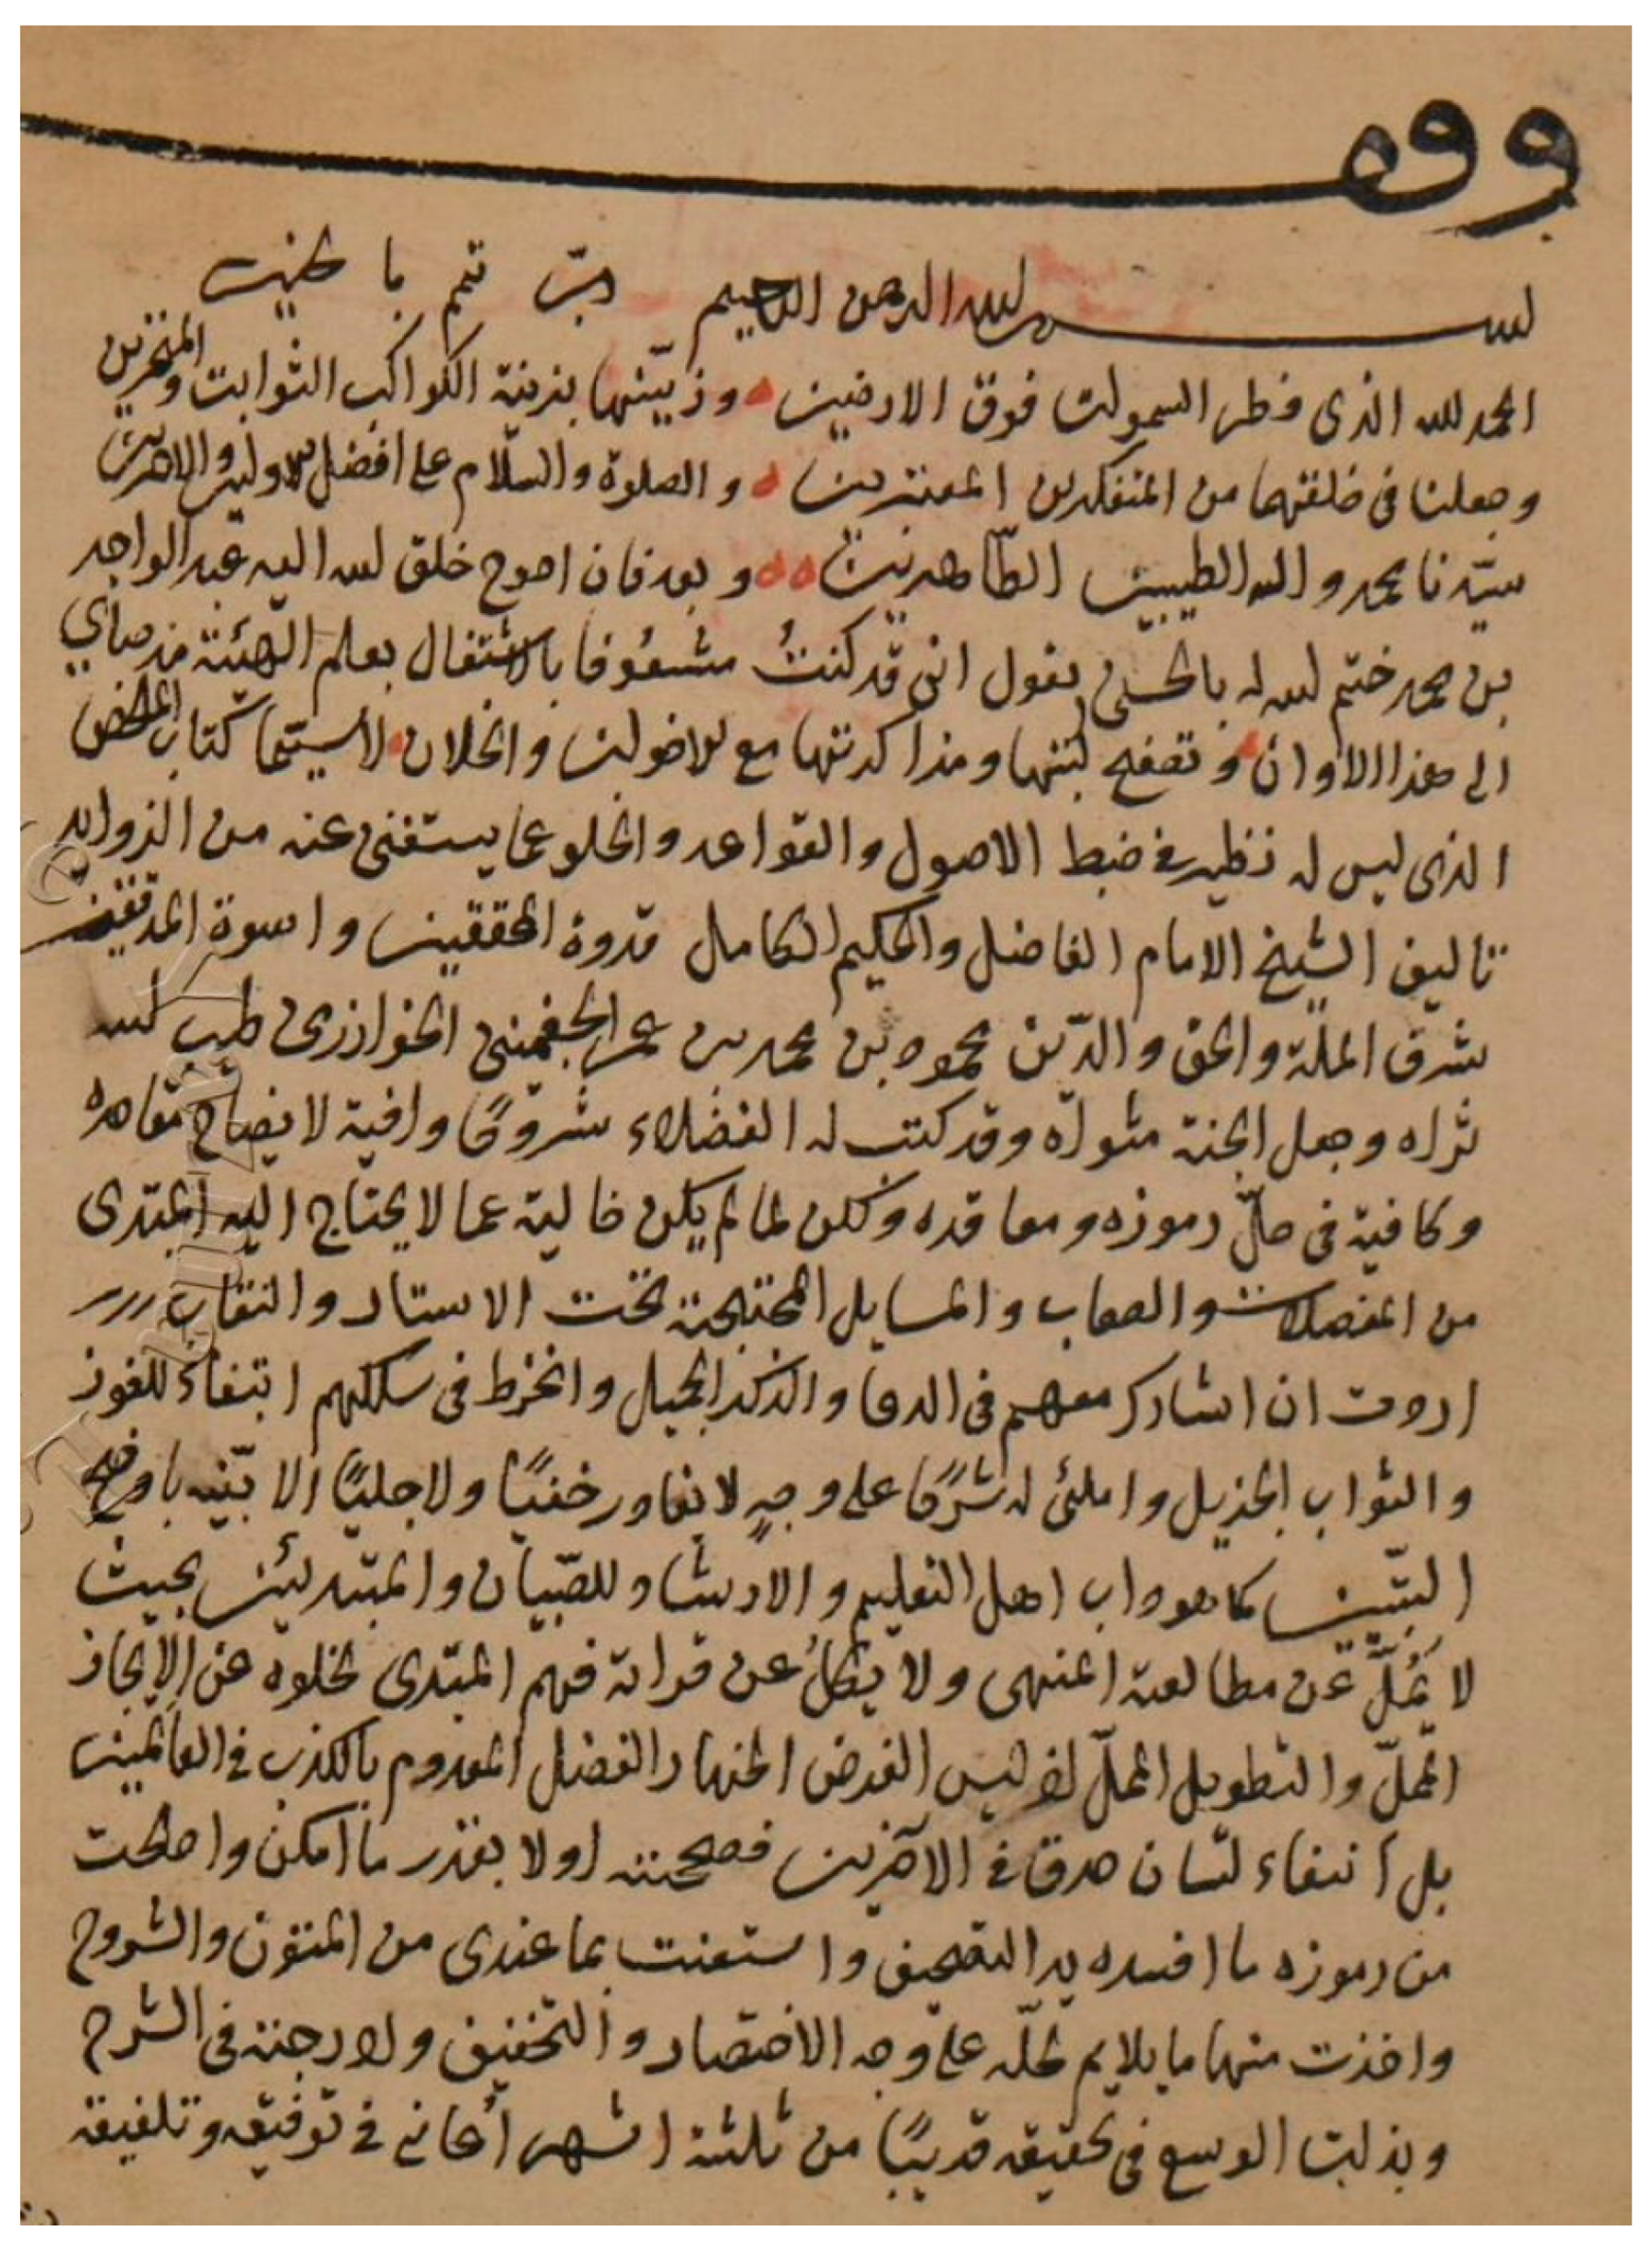 وقف
بسم الله الرحمن الرحيم رب تمم بالخير
الحمد لله الذى فطر السموات فوق الارضين وزينها بزينة الكواكب الثوابت والمتحيرين
وجعلنا فى خلقتهما من المتفكرين المعتبرين والصلوة والسلام على افضل الاولين والاخرين
سيدنا محمد واله الطيبين الطاهرين وبعد فان احوج خلق الله اليه عبد الواجد
بن محمد ختم الله له بالحسنى يقول انى قد كنتُ مشعوفا بالاشتغال بعلم الهيئة مذ صباي
الى هذا الاوان وتصفح كتبها ومذاكرتها مع الاخوان والخلان لا سيما كتاب الملخص
الذى ليس له نظير فى ضبط الاصول والقواعد والخلو عما يستغنى عنه من الزوايد
تاليف الشيخ الامام الفاضل والحكيم الكامل قدوة المحققين واسوة المدققين
شرف الملة والحق والدين محمود بن محمد بن عمر الجغمينى الخوارزمى طيب الله
ثراه وجعل الجنة مثواه وقد كتب له الفضلاء شروحًا وافية لايضاح مقاصده
وكافية فى حلّ رموزه ومعاقده ولكن لما لم يكن خالية عما لا يحتاج اليه المبتدى
من المعضلات والصعاب والمسايل المحتجبة تحت الاستار والنقاب
اردت ان اشارك معهم فى الدعا والذكر الجميل وانخرط فى سلكهم ابتغاء للفوز
والثواب الجزيل واملئ له شرحًا على وجهٍ لا يغادر خفيًا ولا جليًا الا بيّنه باوضح
التبيين كما هو داب اهل التعليم والارشاد للصّبيان والمبتدئين بحيث
لا يُملّ عن مطالعته المنتهى ولا يكلُّ عن قراته فهم المبتدى لخلوه عن الايجاز
المخلّ والتطويل المملّ اذ ليس الغرض اظهار الفضل المعدوم بالكذب فى العالمين
بل ابتغاء لسان صدق فى الآخرين فصححته اولا بقدر ما امكن واصلحت
من رموزه ما افسده يد التصحيف واستعنت بما عندى من المتون والشروح
واخذت منها ما يلايم لحلّه على وجه الاختصار والتخفيف ولادرجته فى الشرح
وبذلت الوسع فى تحقيقه قريبًا من ثلثة اشهر أعاننى فى توفيقه وتلفيقه